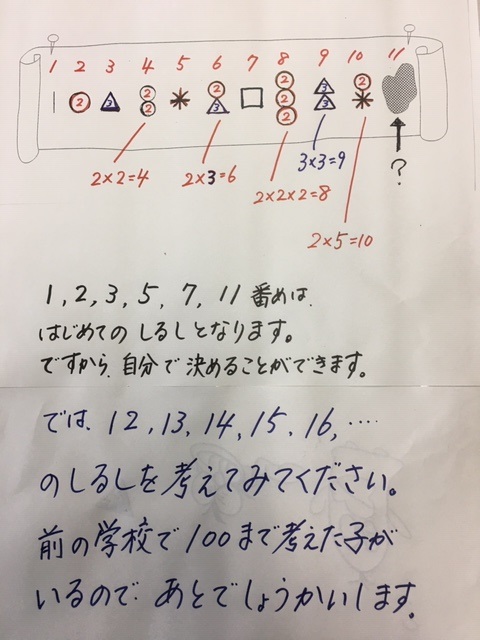 1 2 3 4 5 6 7 8 9 10 11
2 3 2 2 2 3 2 2 2 3 3 2
2×2=4 2×3=6 3×3=9 ?
2×2×2=8
2×5=10
1, 2, 3, 5, 7, 11 番めは、
はじめての しるしとなります。
ですから、自分で決めることができます。
では、12, 13, 14, 15, 16, ‥‥
のしるしを考えてみてください。
前の学校で100まで考えた子が
いるので、あとでしょうかいします。